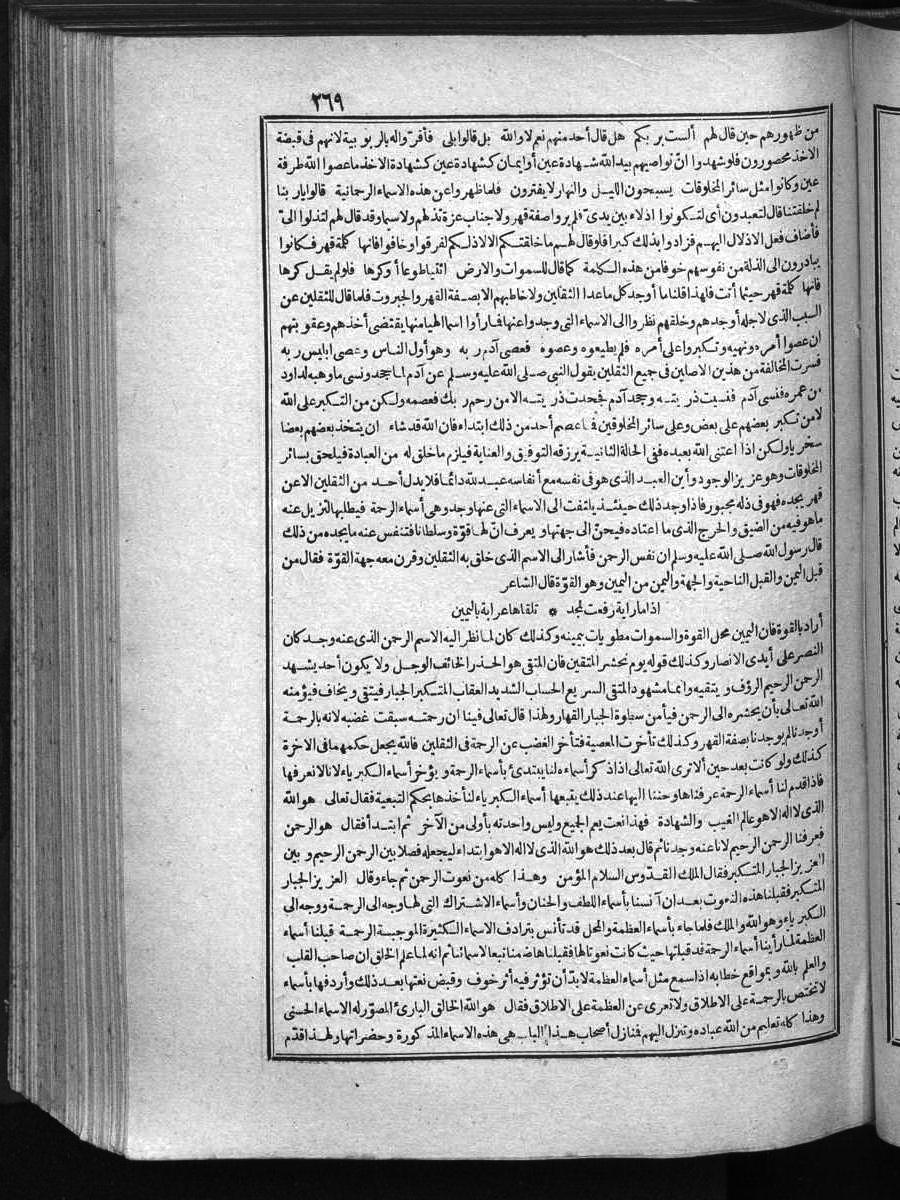 ٢٦٩
من ظهورهم حين قال لهم ألست بربكم هل قال أحد منهم نعم لا والله بل قالوا بلى فأقروا له بالربوبية لانهم فى قبضة
الاخذ محصورون فلو شهدوا انّ نواصيهم بيد الله شهادة عين أوايمان كشهادة عين كشهادة الاخذ ماعصوا الله طرفة
عين وكانوا مثل سائر المخلوقات يسبحون الليل والنهار لا يفترون فلما ظهروا عن هذه الاسماء الرحمانية قالوا ياربنا
لم خلقتنا قال لتعبدون أى لتكونوا اذلاء بين يدىّ فلم يروا صفة قهر ولا جناب عزة تذلهم ولاسيما وقد قال لهم لتذلوا الىّ
فأضاف فعل الاذلال اليهم فزادوا بذلك كبرا فلو قال لهم ما خلقتكم الا لاذلكم لفرقوا وخافوا فانها كلمة قهر فكانوا
يبادرون الى الذلة من نفوسهم خوفا من هذه الكلمة كما قال للسموات والارض ائتيا طوعا أوكرها فلو لم يقل كرها
فانها كلمة قهر حيثما أتت فلهذا قلنا ما أوجد كل ما عدا الثقلين ولا خاطبهم الا بصفة القهر والجبروت فلما قال للثقلين عن
السبب الذى لاجله أوجدهم وخلقهم نظروا الى الاسماء التى وجدوا عنها فما رأوا اسما الهيا منها يقتضى أخذهم وعقوبتهم
ان عصوا أمره ونهيه وتكبروا على أمره فلم يطيعوه وعصوه فعصى آدم ربه وهو أول الناس وعصى ابليس ربه
فسرت المخالفة من هذين الاصلين فى جميع الثقلين يقول النبى صلى الله عليه وسلم عن آدم لما جحد ونسى ما وهبه لداود
من عمره فنسى آدم فنسيت ذريته وجحد آدم فجحدت ذريته الا من رحم ربك فعصمه ولكن من التكبر على الله
لا من تكبر بعضهم على بعض وعلى سائر المخلوقين فما عصم أحد من ذلك ابتداء فان الله قد شاء ان يتخذ بعضهم بعضا
سخريا ولكن اذا اعتنى الله بعبده ففى الحالة الثانية يرزقه التوفيق والعناية فيلزم ما خلق له من العبادة فيلحق بسائر
المخلوقات وهو عزيز الوجود وأين العبد الذى هو فى نفسه مع أنفاسه عبد لله دائما فلابد لأحد من الثقلين الا عن
قهر يجده فهو فى ذله مجبور فاذا وجد ذلك حينئذ يلتفت الى الاسماء التى عنها وجد وهى أسماء الرحمة فيطلبها لتزيل عنه
ما هو فيه من الضيق والحرج الذى ما اعتاده فيحنّ الى جهتها ويعرف انّ لها قوّة وسلطانا فتنفس عنه ما يجده من ذلك
قال رسول الله صلى الله عليه وسلم ان نفس الرحمن فأشار الى الاسم الذى خلق به الثقلين وقرن معه جهة القوّة فقال من
قبل اليمن والقبل الناحية والجهة واليمن من اليمين وهو القوّة قال الشاعر
اذا ما راية رفعت لمجد * تلقاها عرابة باليمين
أراد بالقوة فان اليمين محل القوة والسموات مطويات بيمينه وكذلك كان لما نظر اليه الاسم الرحمن الذى عنه وجد كان
النصر على أيدى الانصار وكذلك قوله يوم نحشر المتقين فان المتقى هو الحذر الخائف الوجل ولا يكون أحد يشهد
الرحمن الرحيم الرؤف ويتقيه وانما مشهود المتقى السريع الحساب الشديد العقاب المتكبر الجبار فيتقى ويخاف فيؤمنه
الله تعالى بأن يحشره الى الرحمن فيأمن سطوة الجبار القهار ولهذا قال تعالى فينا ان رحمته سبقت غضبه لانه بالرحمة
أوجدنا لم يوجدنا بصفة القهر وكذلك تأخرت المعصية فتأخر الغضب عن الرحمة فى الثقلين فالله يجعل حكمهما فى الاخرة
كذلك ولو كانت بعد حين ألا ترى الله تعالى اذا ذكر أسماءه لنا يبتدئ بأسماء الرحمة ويؤخر أسماء الكبرياء لانا لا نعرفها
فاذا قدم لنا أسماء الرحمة عرفناها وحننا اليها عند ذلك يتبعها أسماء الكبرياء لنأخذها بحكم التبعية فقال تعالى هو الله
الذى لا اله الا هو عالم الغيب والشهادة فهذا نعت يعم الجميع وليس واحد ته بأولى من الآخر ثم ابتدأ فقال هو الرحمن
فعرفنا الرحمن الرحيم لانا عنه وجدنا ثم قال بعد ذلك هو الله الذى لا اله الا هو ابتداء ليجعله فصلا بين الرحمن الرحيم وبين
العزيز الجبار المتكبر فقال الملك القدّوس السلام المؤمن وهذا كله من نعوت الرحمن ثم جاء وقال العزيز الجبار
المتكبر فقبلنا هذه النعوت بعد ان آنسنا بأسماء اللطف والحنان وأسماء الاشتراك التى لها وجه الى الرحمة ووجه الى
الكبرياء وهو الله والملك فلما جاء بأسماء العظمة والمحل قد تأنس بترادف الاسماء الكثيرة الموجبة الرحمة قبلنا أسماء
العظمة لما رأينا أسماء الرحمة قد قبلتها حيث كانت نعوتا لها فقبلناها ضمنا تبعا لاسمائنا ثم انه لما علم الخلق ان صاحب القلب
والعلم بالله وبمواقع خطابه اذا سمع مثل أسماء العظمة لابدّ أن تؤثر فيه أثر خوف وقبض نعتها بعد ذلك وأردفها بأسماء
لا تختص بالرحمة على الاطلاق ولا تعرى عن العظمة على الاطلاق فقال هو الله الخالق البارئ المصوّر له الاسماء الحسنى
وهذا كله تعليم من الله عباده وتنزل اليهم فنازل أصحاب هذا الباب هى هذه الاسماء المذكورة وحضراتها ولهذا قدّم